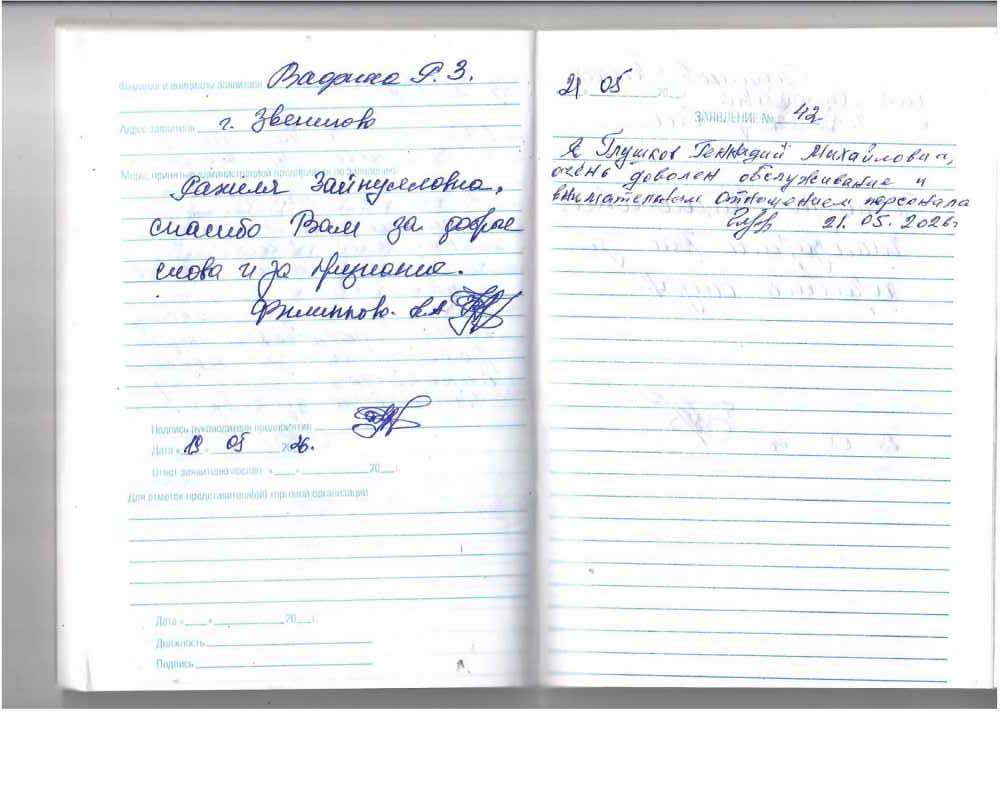 Фамилия и инициалы заявителя Вафина Р. З.
Адрес заявителя г. Звенигово
Меры, принятые администрацией предприятия по заявлению:
Рахиля Зайнулловна,
спасибо Вам за добрые
слова и за признание.
Филиппова
Подпись руководителя предприятия
Дата « 19 » 05 2026.
Ответ заявителю послан «___» ______________ 20__г.
Для отметок представителя(ей) торговой организации
Дата «___» ______________ 20__г.
Должность
Подпись
21 05 20
ЗАЯВЛЕНИЕ № 42
Я Глушков Геннадий Михайлович,
очень доволен обслуживание и
внимательным отношением персонала
21. 05. 2026г